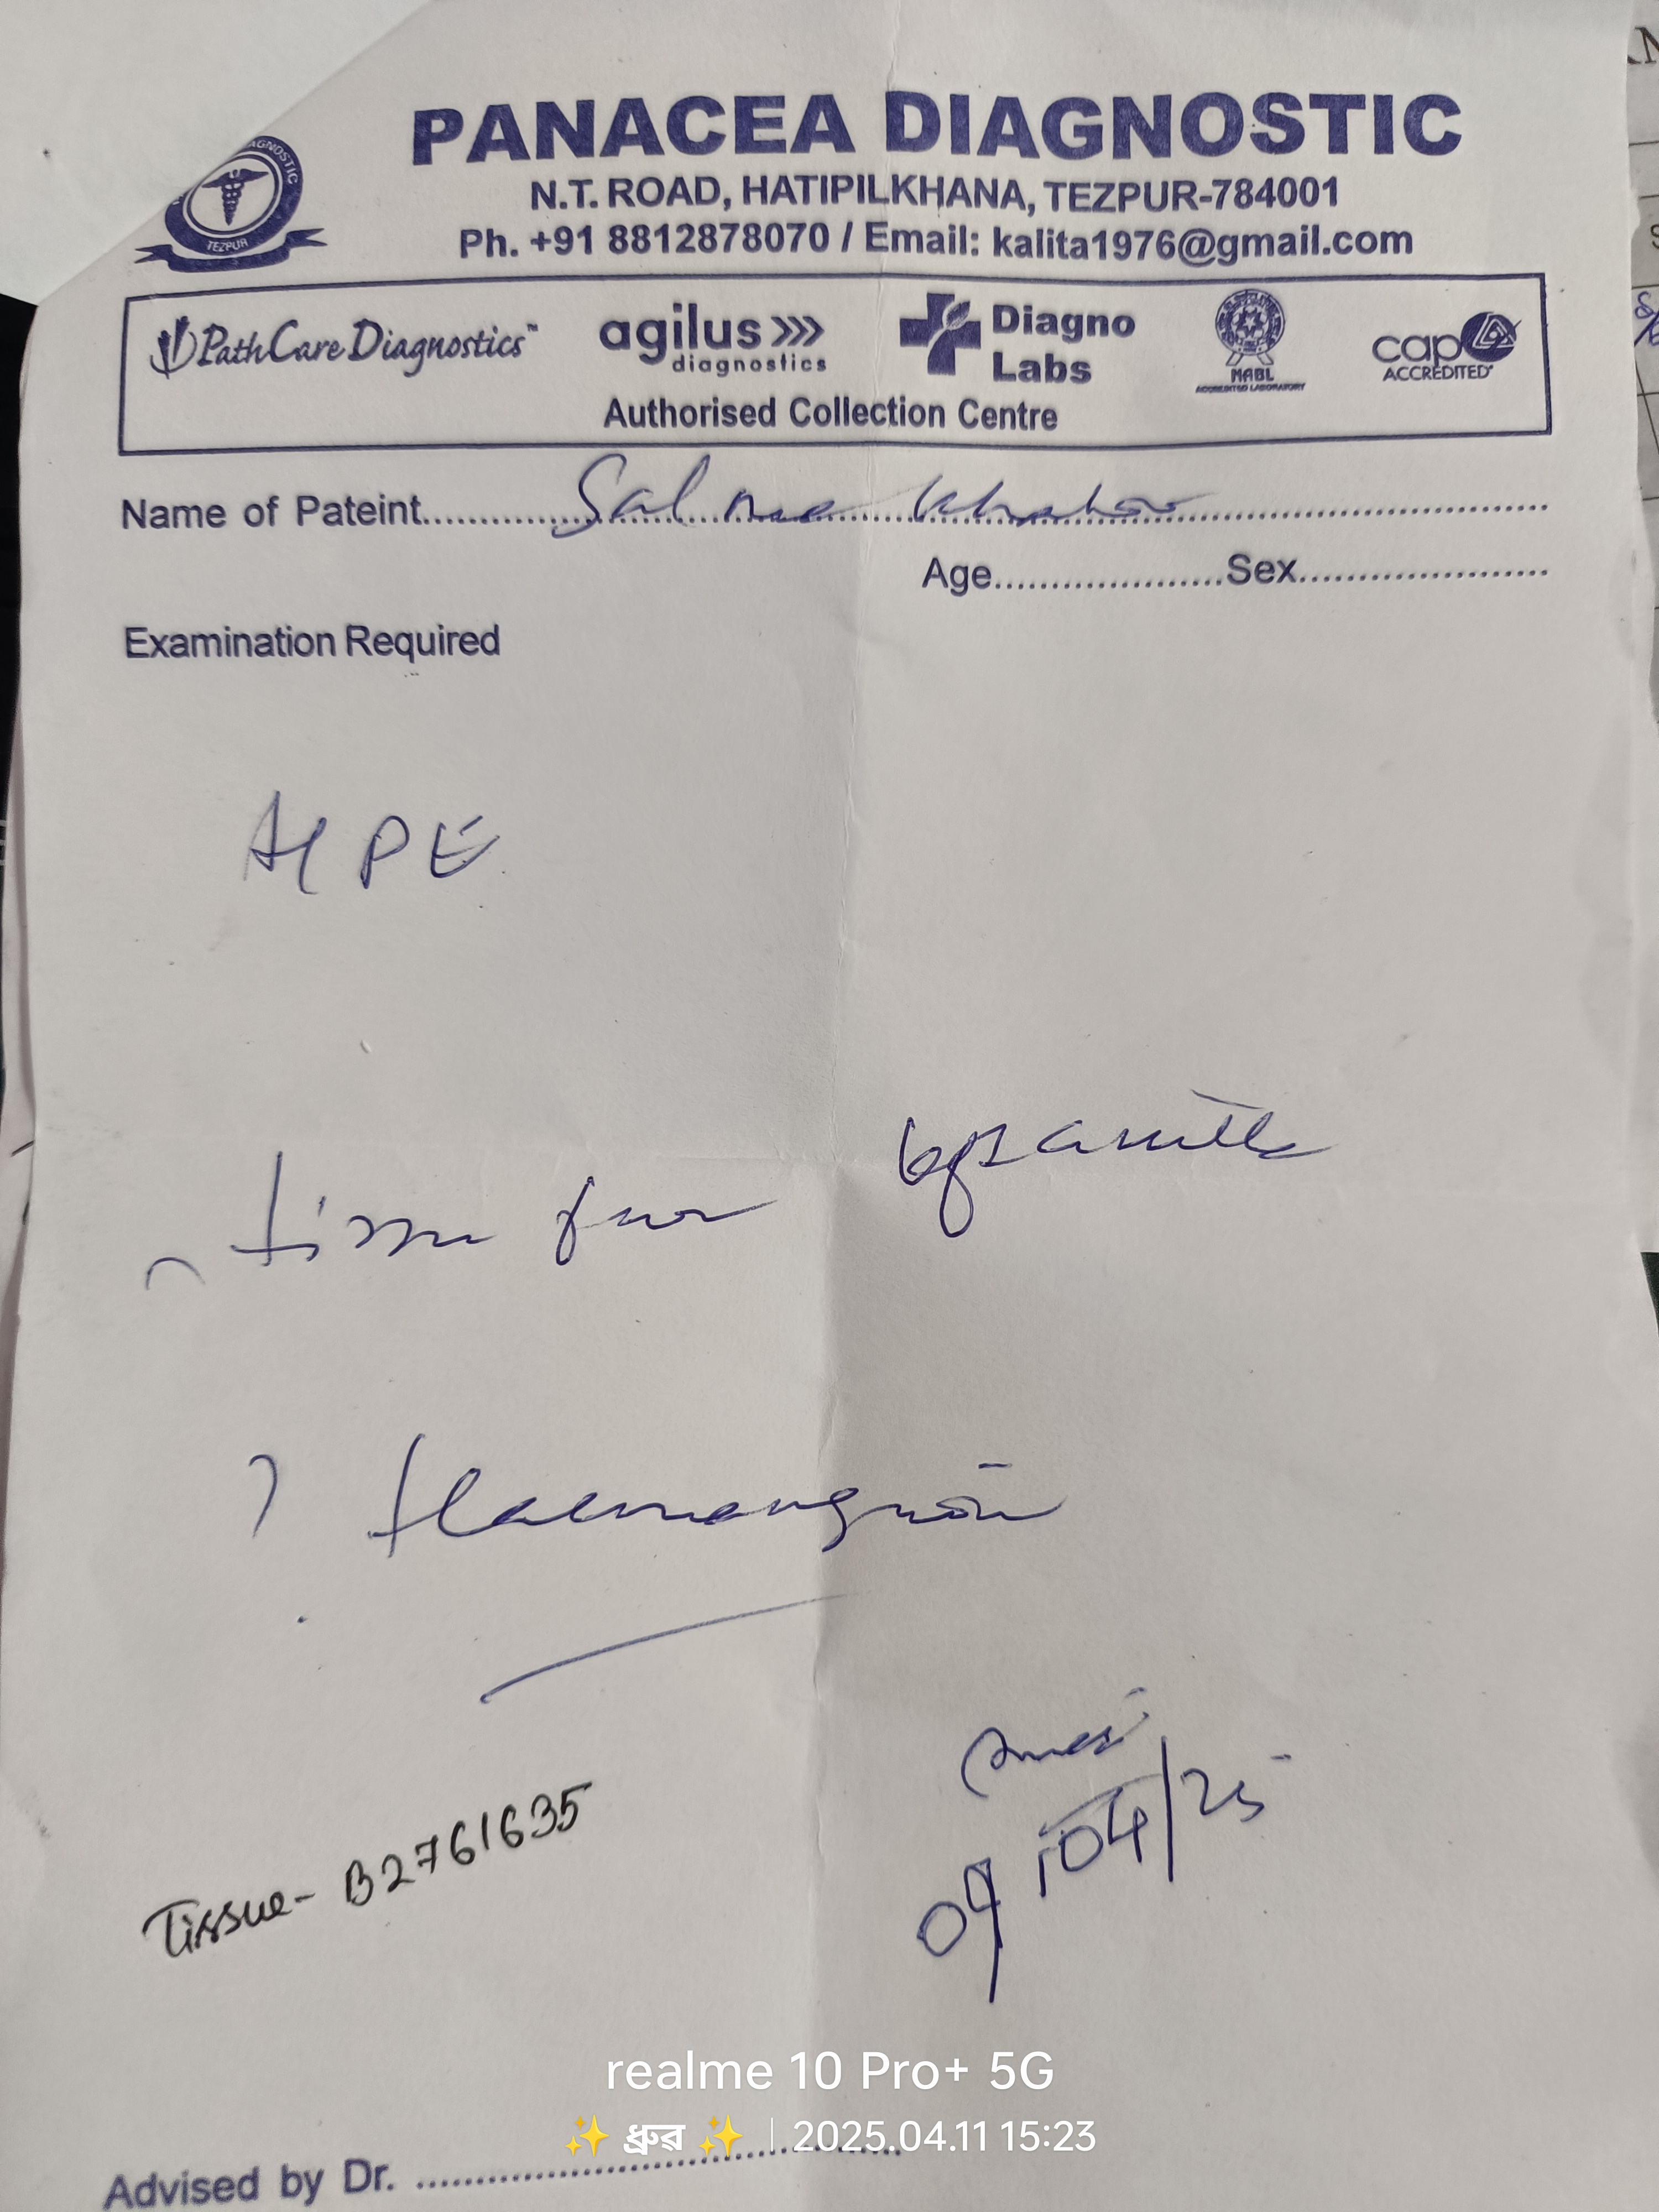 PANACEA DIAGNOSTIC
N.T. ROAD, HATIPILKHANA, TEZPUR-784001
Ph. +91 8812878070 / Email: kalita1976@gmail.com
AGNOSTIC
TEZPUR
PathCare Diagnostics™
agilus diagnostics
Diagno Labs
NABL
ACCREDITED LABORATORY
cap ACCREDITED
Authorised Collection Centre
Name of Pateint.......... Salma
Age.......... Sex..........
Examination Required
HPE
tissue from
? Haemangioma
09/04/25
Tissue- B2761635
realme 10 Pro+ 5G
✨ ধ্ৰুৱ ✨ | 2025.04.11 15:23
Advised by Dr. ..........